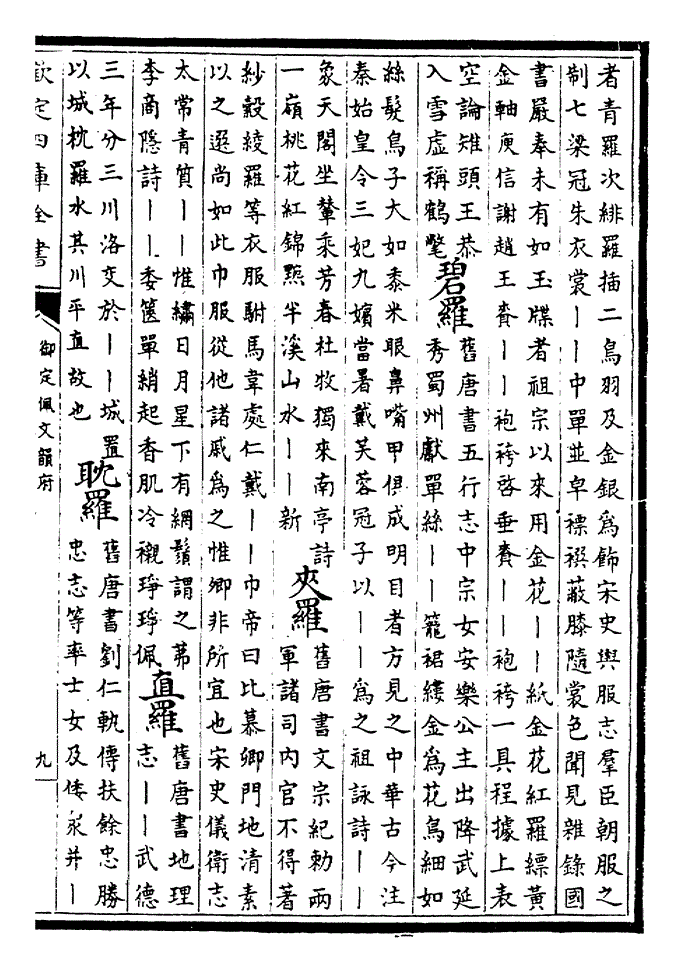 者青羅次緋羅插二鳥羽及金銀為飾宋史輿服志羣臣朝服之
制七梁冠朱衣裳——中單並皁褾襈蔽膝隨裳色聞見雜錄國
書嚴奉未有如玉牒者祖宗以來用金花——紙金花紅羅縹黃
金軸庾信謝趙王賚——袍袴啓垂賚——袍袴一具程據上表
空論雉頭王恭
入雪虛稱鶴氅
碧羅
舊唐書五行志中宗女安樂公主出降武延
秀蜀州獻單絲——籠裙縷金為花鳥細如
絲髮鳥子大如黍米眼鼻嘴甲俱成明目者方見之中華古今注
秦始皇令三妃九嬪當暑戴芙蓉冠子以——為之祖詠詩——
象天閣坐輦乘芳春杜牧獨來南亭詩
一嶺桃花紅錦㸃半溪山水——新
夾羅
舊唐書文宗紀勅兩
軍諸司内官不得著
紗縠綾羅等衣服駙馬韋處仁戴——巾帝曰比慕卿門地清素
以之選尚如此巾服從他諸戚為之惟卿非所宜也宋史儀衛志
太常青質——惟繡日月星下有網鬚謂之茀
李商隱詩——委篋單綃起香肌冷襯琤琤佩
直羅
舊唐書地理
志——武德
三年分三川洛交於——城置
以城枕羅水其川平直故也
耽羅
舊唐書劉仁軌傳扶餘忠勝
忠志等率士女及倭衆并——
欽定四庫全書
御定佩文韻府
九